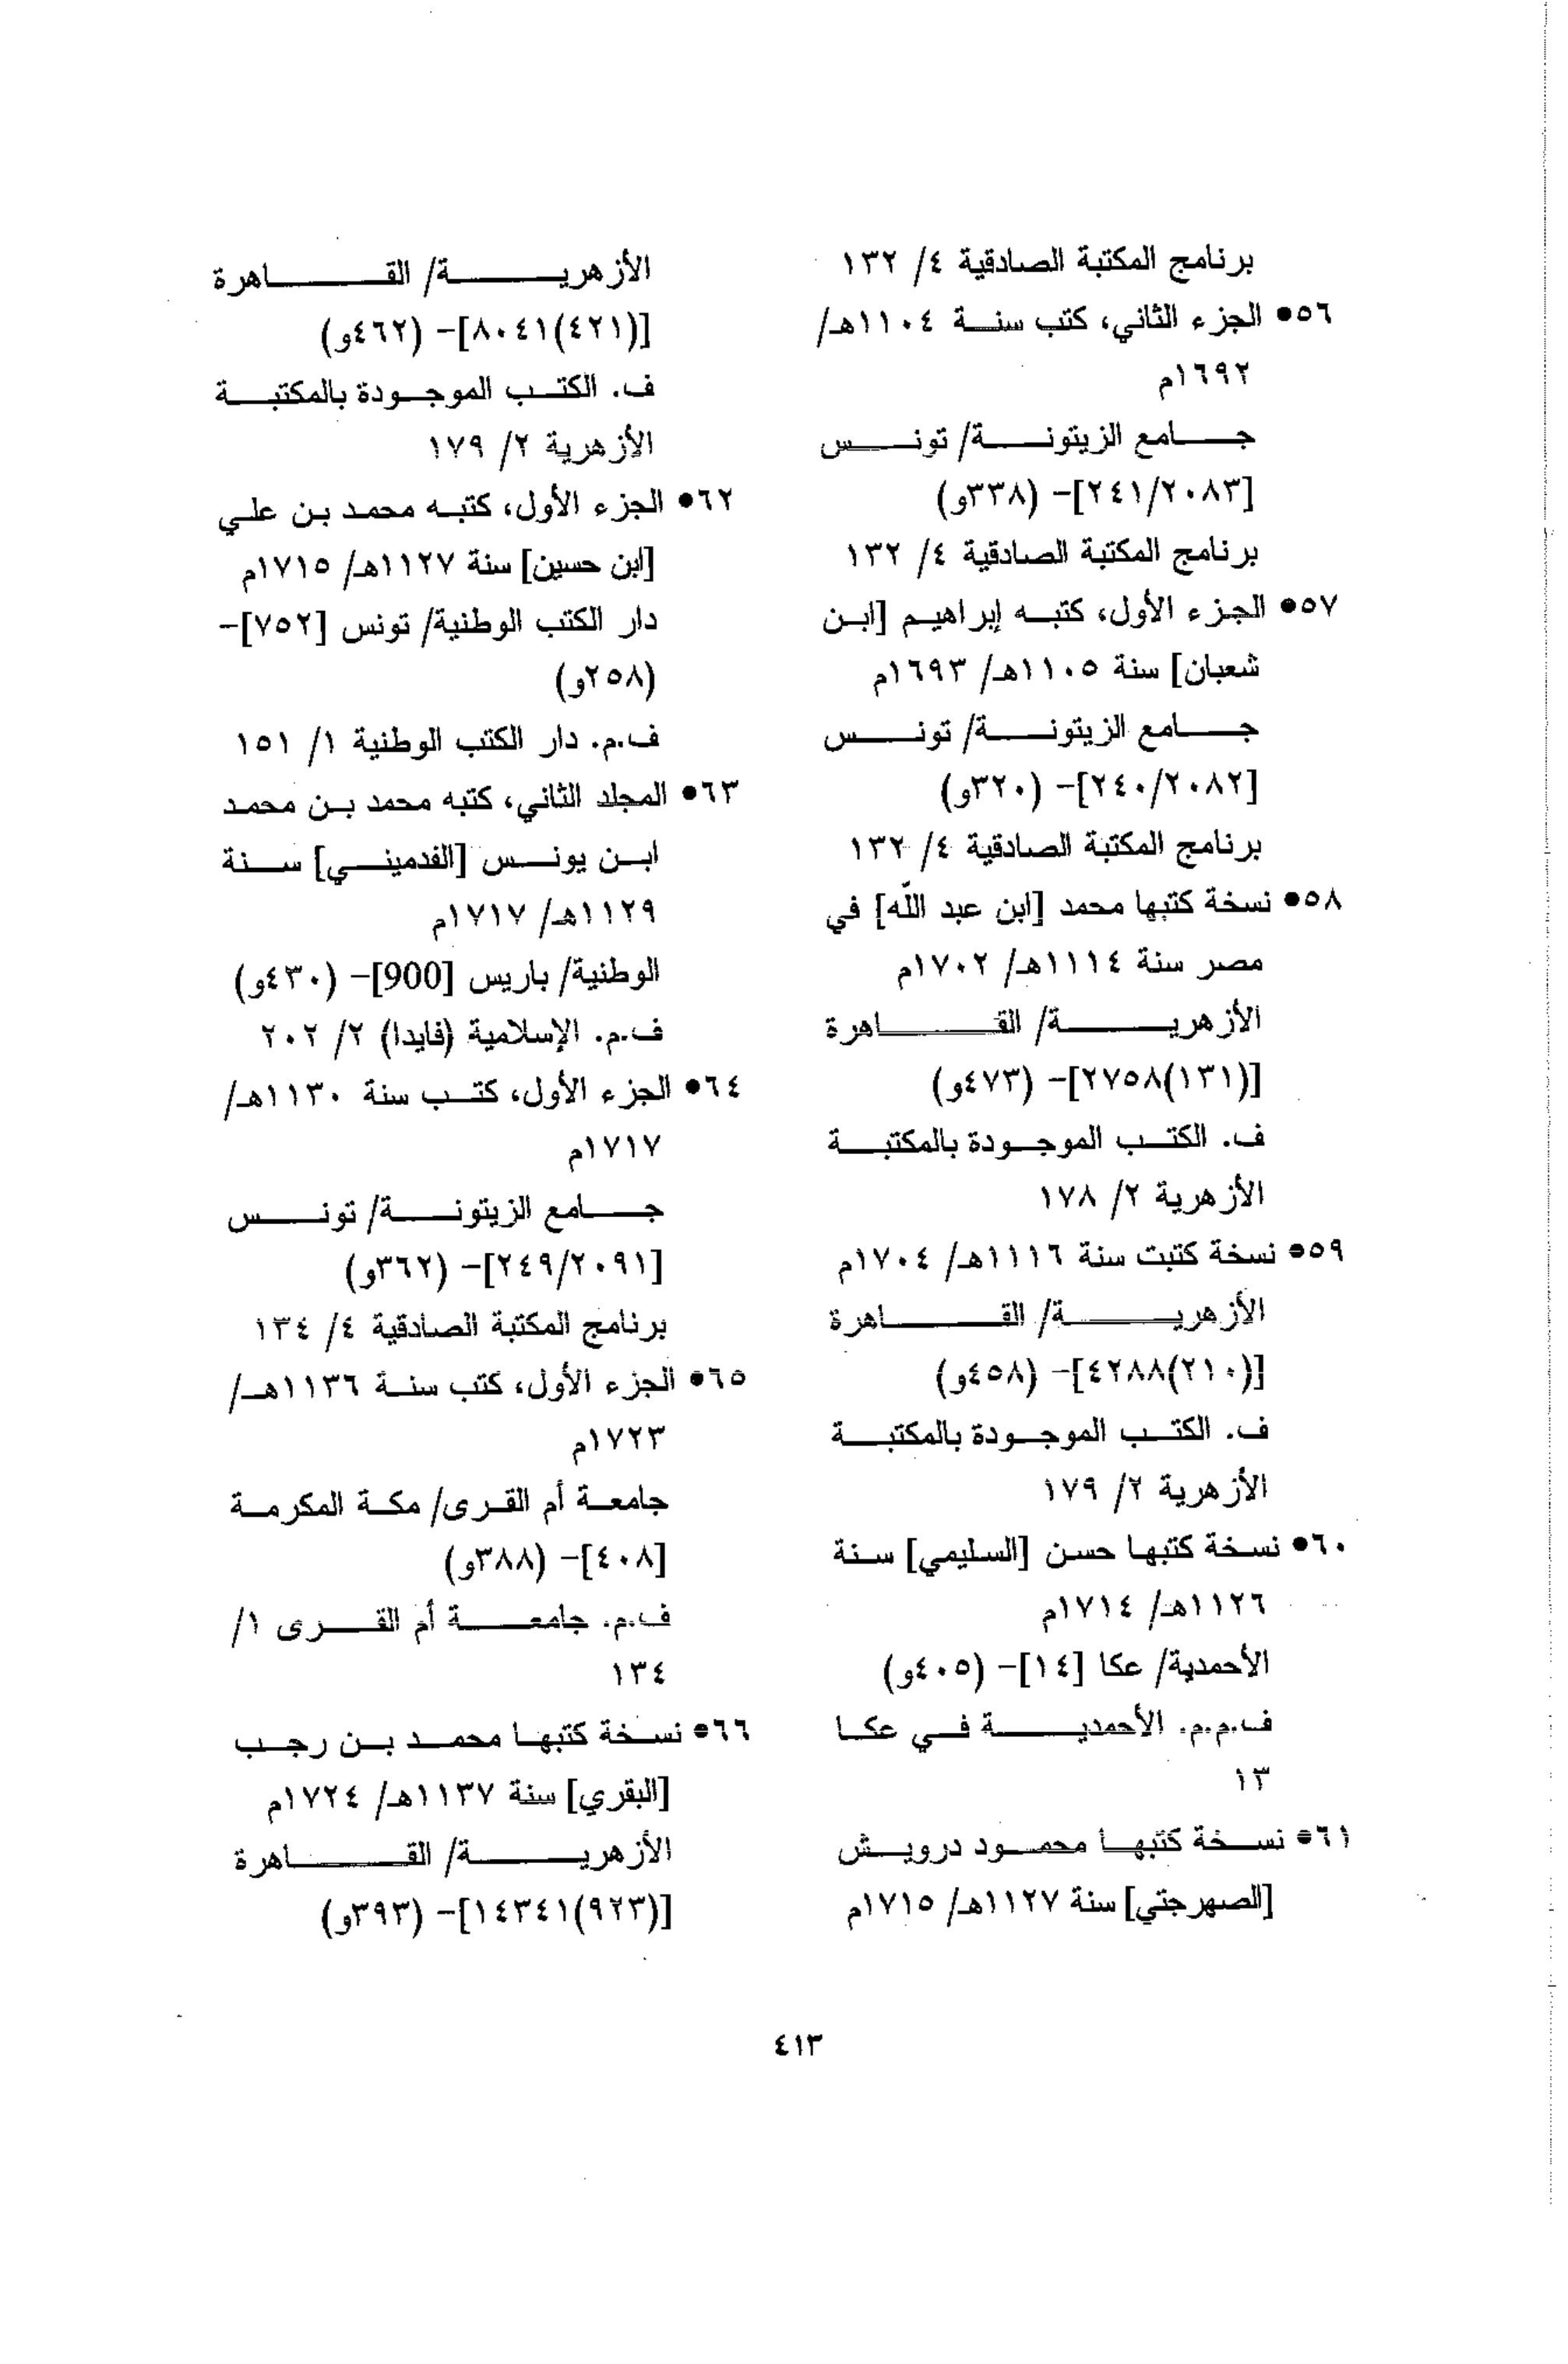 برنامج المكتبة الصادقية ٤/ ١٣٢
٥٦● الجزء الثاني، كتب سنة ١١٠٤هـ/
١٦٩٢م
جامع الزيتونة/ تونس
[٢٤١/٢٠٨٣]- (٣٣٨و)
برنامج المكتبة الصادقية ٤/ ١٣٢
٥٧● الجزء الأول، كتبه إبراهيم [ابن
شعبان] سنة ١١٠٥هـ/ ١٦٩٣م
جامع الزيتونة/ تونس
[٢٤٠/٢٠٨٢]- (٣٢٠و)
برنامج المكتبة الصادقية ٤/ ١٣٢
٥٨● نسخة كتبها محمد [ابن عبد اللّه] في
مصر سنة ١١١٤هـ/ ١٧٠٢م
الأزهرية/ القاهرة
[(١٣١)٢٧٥٨]- (٤٧٣و)
ف. الكتب الموجودة بالمكتبة
الأزهرية ٢/ ١٧٨
٥٩● نسخة كتبت سنة ١١١٦هـ/ ١٧٠٤م
الأزهرية/ القاهرة
[(٢١٠)٤٢٨٨]- (٤٥٨و)
ف. الكتب الموجودة بالمكتبة
الأزهرية ٢/ ١٧٩
٦٠● نسخة كتبها حسن [السليمي] سنة
١١٢٦هـ/ ١٧١٤م
الأحمدية/ عكا [١٤]- (٤٠٥و)
ف.م.م. الأحمدية في عكا
١٣
٦١● نسخة كتبها محمود درويش
[الصهرجتي] سنة ١١٢٧هـ/ ١٧١٥م
الأزهرية/ القاهرة
[(٤٢١)٨٠٤١]- (٤٦٢و)
ف. الكتب الموجودة بالمكتبة
الأزهرية ٢/ ١٧٩
٦٢● الجزء الأول، كتبه محمد بن علي
[ابن حسين] سنة ١١٢٧هـ/ ١٧١٥م
دار الكتب الوطنية/ تونس [٧٥٢]-
(٢٥٨و)
ف.م. دار الكتب الوطنية ١/ ١٥١
٦٣● المجلد الثاني، كتبه محمد بن محمد
ابن يونس [الفدميني] سنة
١١٢٩هـ/ ١٧١٧م
الوطنية/ باريس [900]- (٤٣٠و)
ف.م. الإسلامية (فايدا) ٢/ ٢٠٢
٦٤● الجزء الأول، كتب سنة ١١٣٠هـ/
١٧١٧م
جامع الزيتونة/ تونس
[٢٤٩/٢٠٩١]- (٣٦٢و)
برنامج المكتبة الصادقية ٤/ ١٣٤
٦٥● الجزء الأول، كتب سنة ١١٣٦هـ/
١٧٢٣م
جامعة أم القرى/ مكة المكرمة
[٤٠٨]- (٣٨٨و)
ف.م. جامعة أم القرى ١/
١٣٤
٦٦● نسخة كتبها محمد بن رجب
[البقري] سنة ١١٣٧هـ/ ١٧٢٤م
الأزهرية/ القاهرة
[(٩٢٣)١٤٣٤١]- (٣٩٣و)
٤١٣